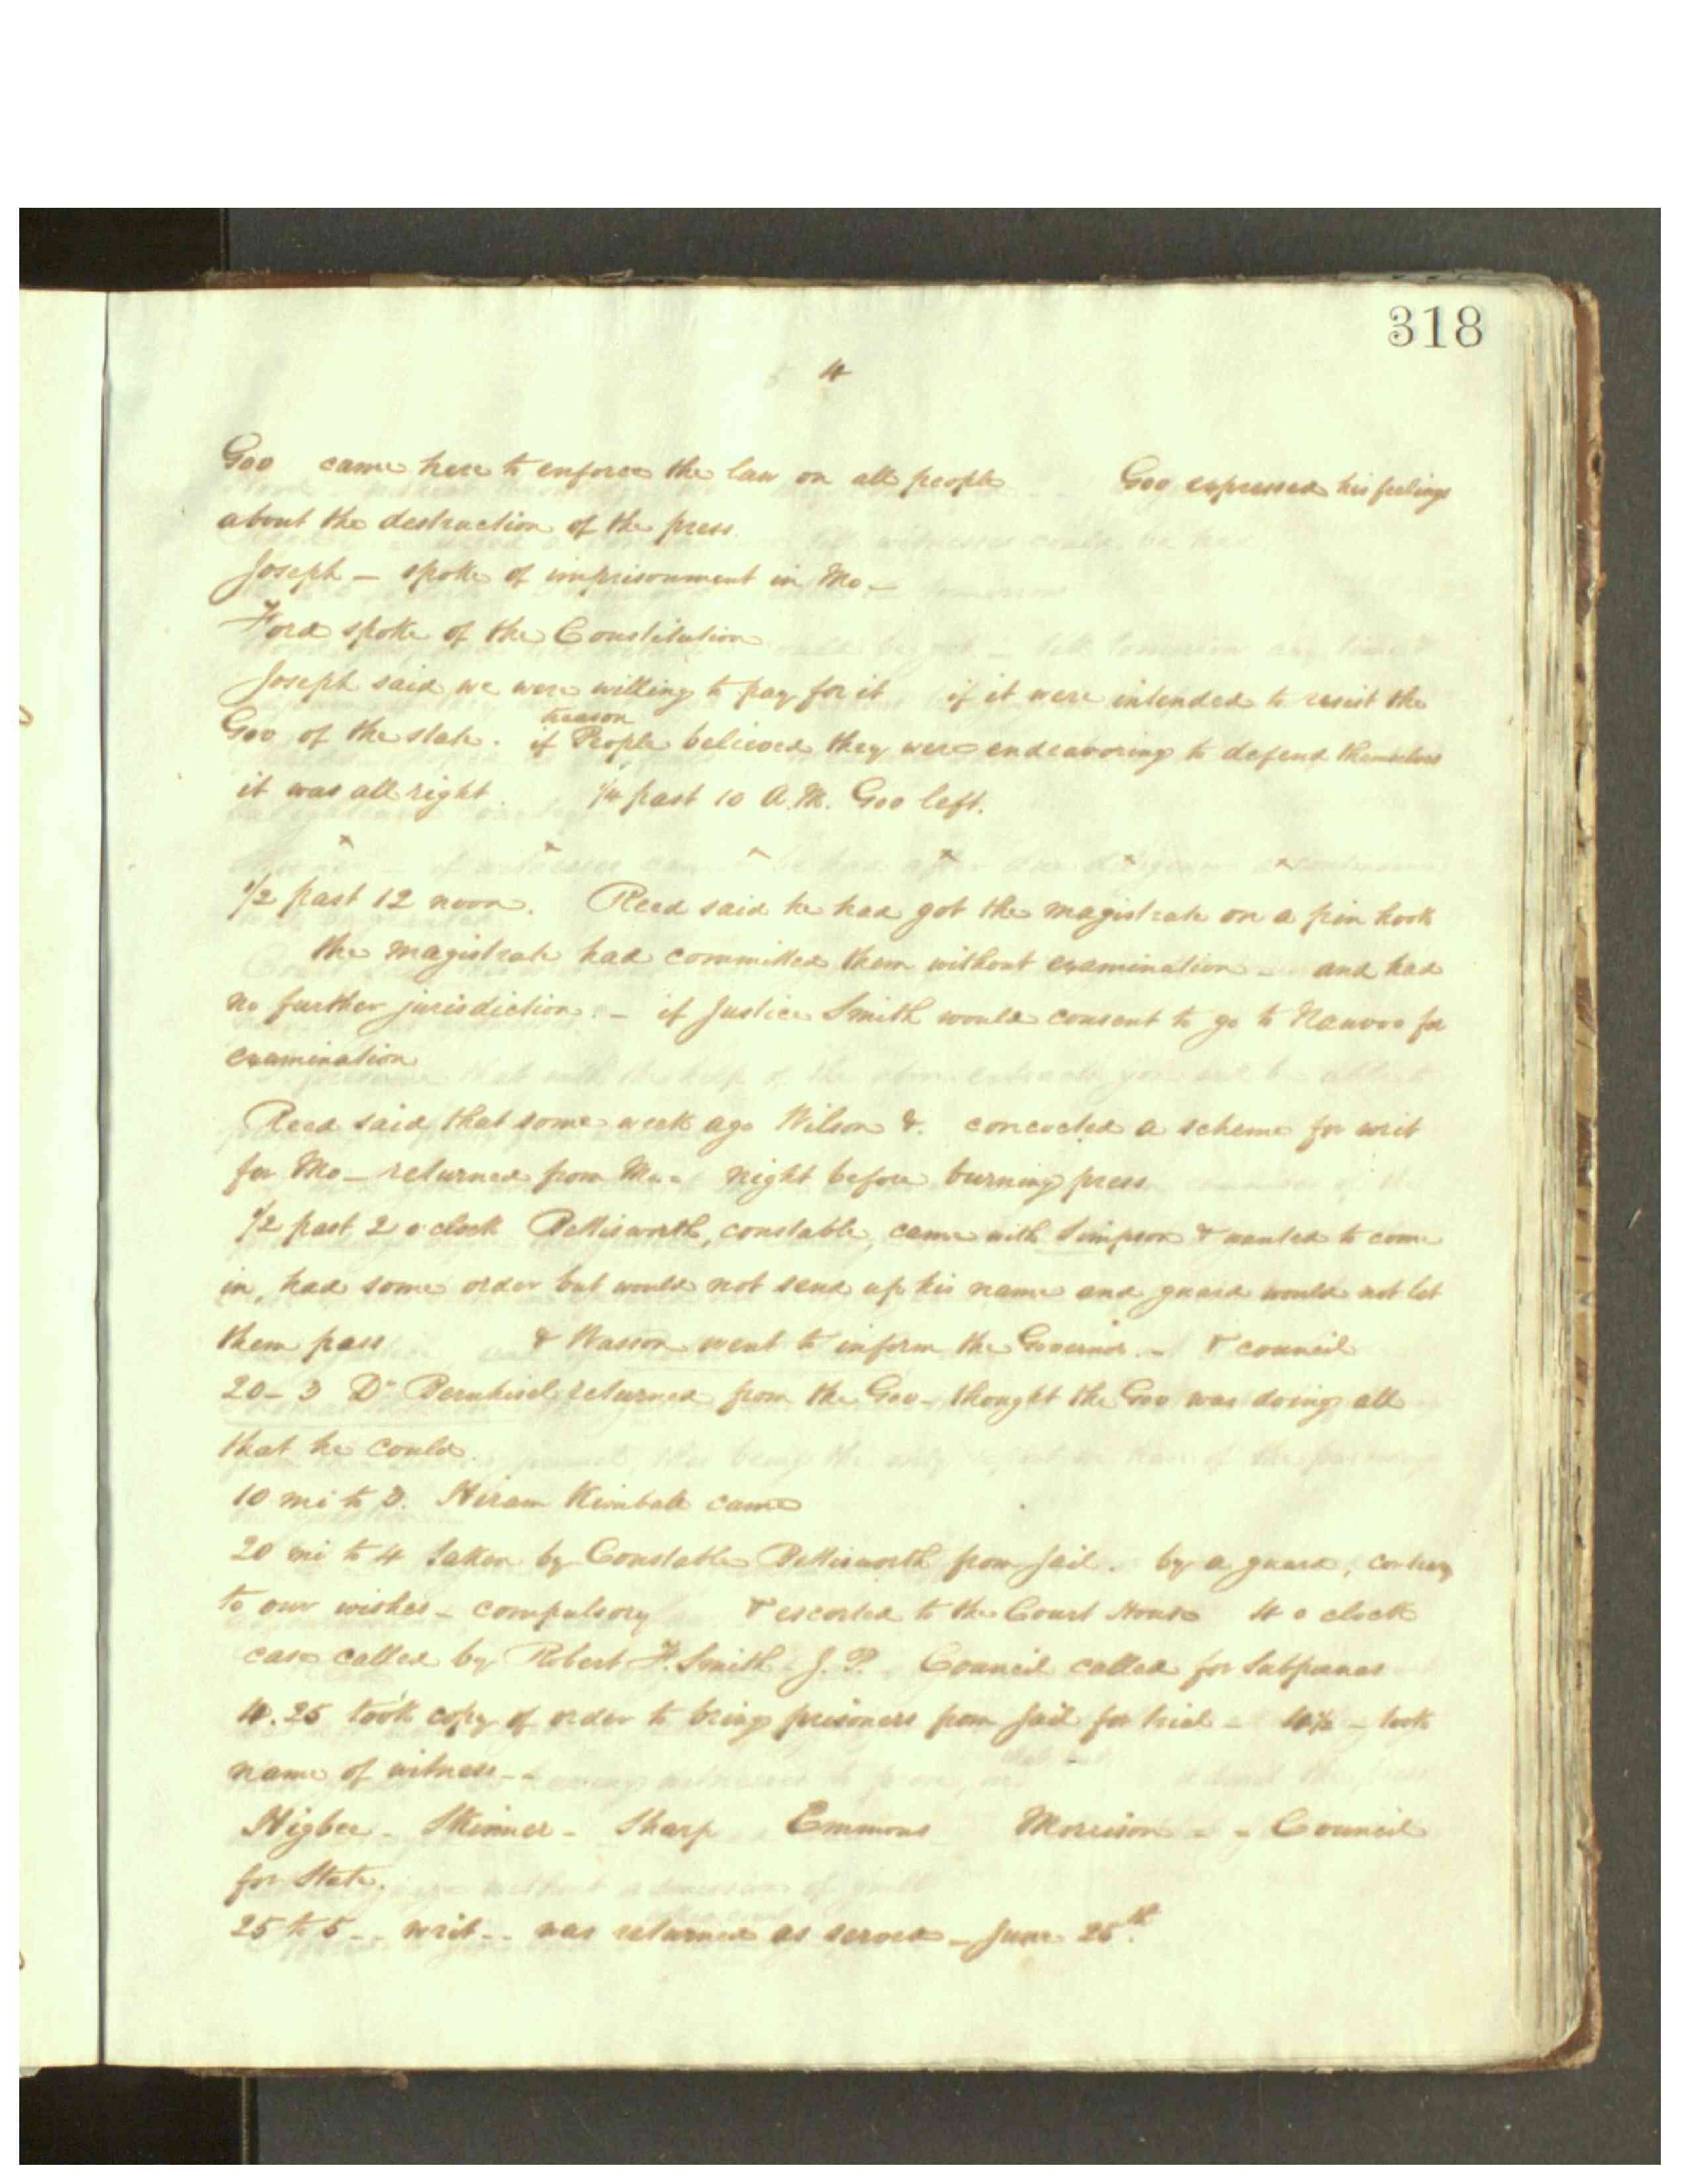 318
4
Gov came here to enforce the law on all people Gov expressed his feelings
about the destruction of the press.
Joseph — spoke of imprisonment in Mo —
Ford spoke of the Constitution
Joseph said we were willing to pay for it if it were intended to resist the
treason
Gov of the state. if People believed they were endeavoring to defend themselves
it was all right. 1/4 past 10 A.M. Gov left.
x x x x x x
1/2 past 12 noon. Reed said he had got the magistrate on a pin hook
the magistrate had committed them without examination — and had
no further jurisdiction. — if Justice Smith would consent to go to Nauvoo for
examination
Reed said that some week ago Wilson &. concocted a scheme for writ
for Mo — returned from Mo. night before burning press
1/2 past 2 o clock Bettisworth, constable, came with Simpson & wanted to come
in, had some order but would not send up his name and guard would not let
them pass & Wasson went to inform the Governor. — & council
20 — 3 Dr Bernhisel returned from the Gov — thought the Gov was doing all
that he could.
10 mi to 3. Hiram Kimball came
20 mi to 4 taken by Constable Bettisworth from jail. by a guard, contrary
to our wishes — compulsory & escorted to the Court House 4 o clock
case called by Robert F. Smith J. P. Council called for Subpenas
4.25 took copy of order to bring prisoners from jail for trial — 4 1/2 — took
name of witness — -
Higbee — Skinner — Sharp Emmons Morrison — - Council
for State.
25 to 5 — - writ — - was returned as served — June 25th.